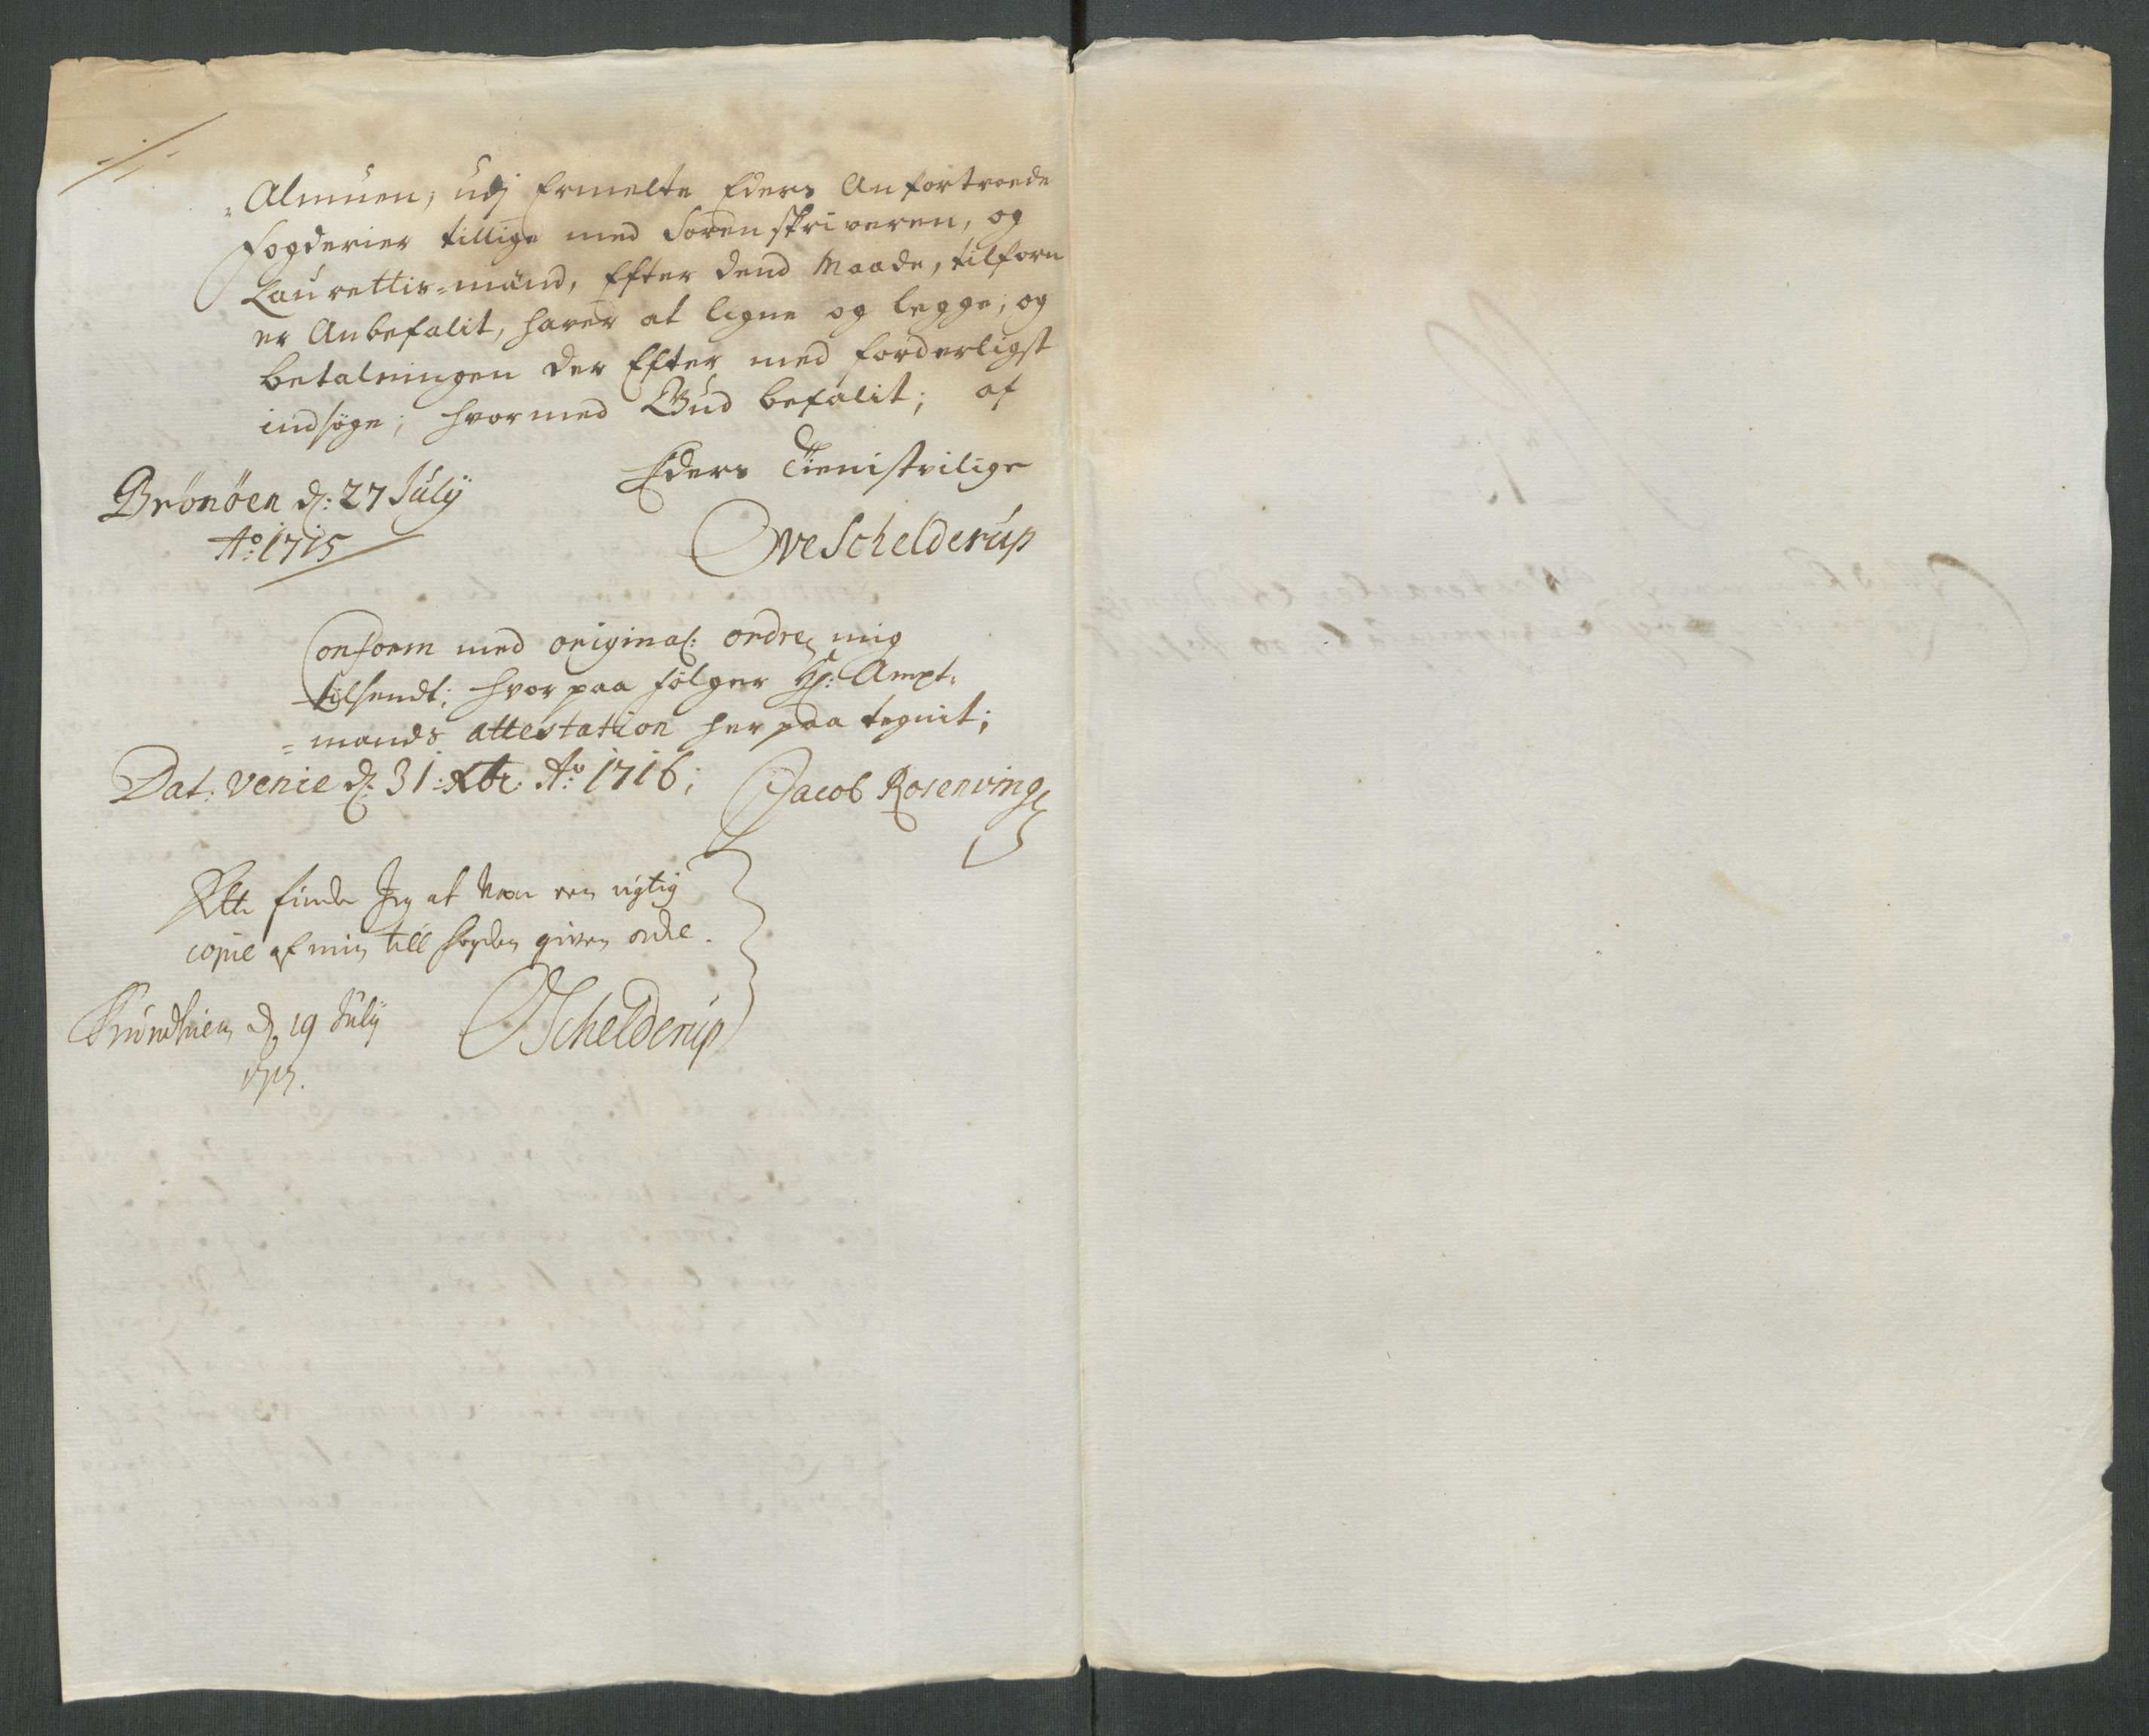 -//-
"Almuen, udj Ermelte Eders Anfortroede
Fogderier tillige med Sorenskriveren, og
Laurettis-mänd, Efter dend Maade, tilforn
er Anbefalit, hafver at ligne og legge, og
betalningen der Efter med forderligst
indsöge; hvormed Gud befalit; af
Eders Tienistvilige
Brönöen d: 27 Julÿ
Ao: 1715
Ove Schelderup
Conform med original: ordre, mig
tilsendt; hvorpaa følger Hr: Ampt-
=mands attestation her paa tegnit;
Dat: Venie d: 31: Xbr: Ao: 1716; Jacob Rosenvinge
finder Jeg at være een rigtig
copie af min till fogden given ordre.
Trundhiem d. 19 Julÿ
OSchelderup